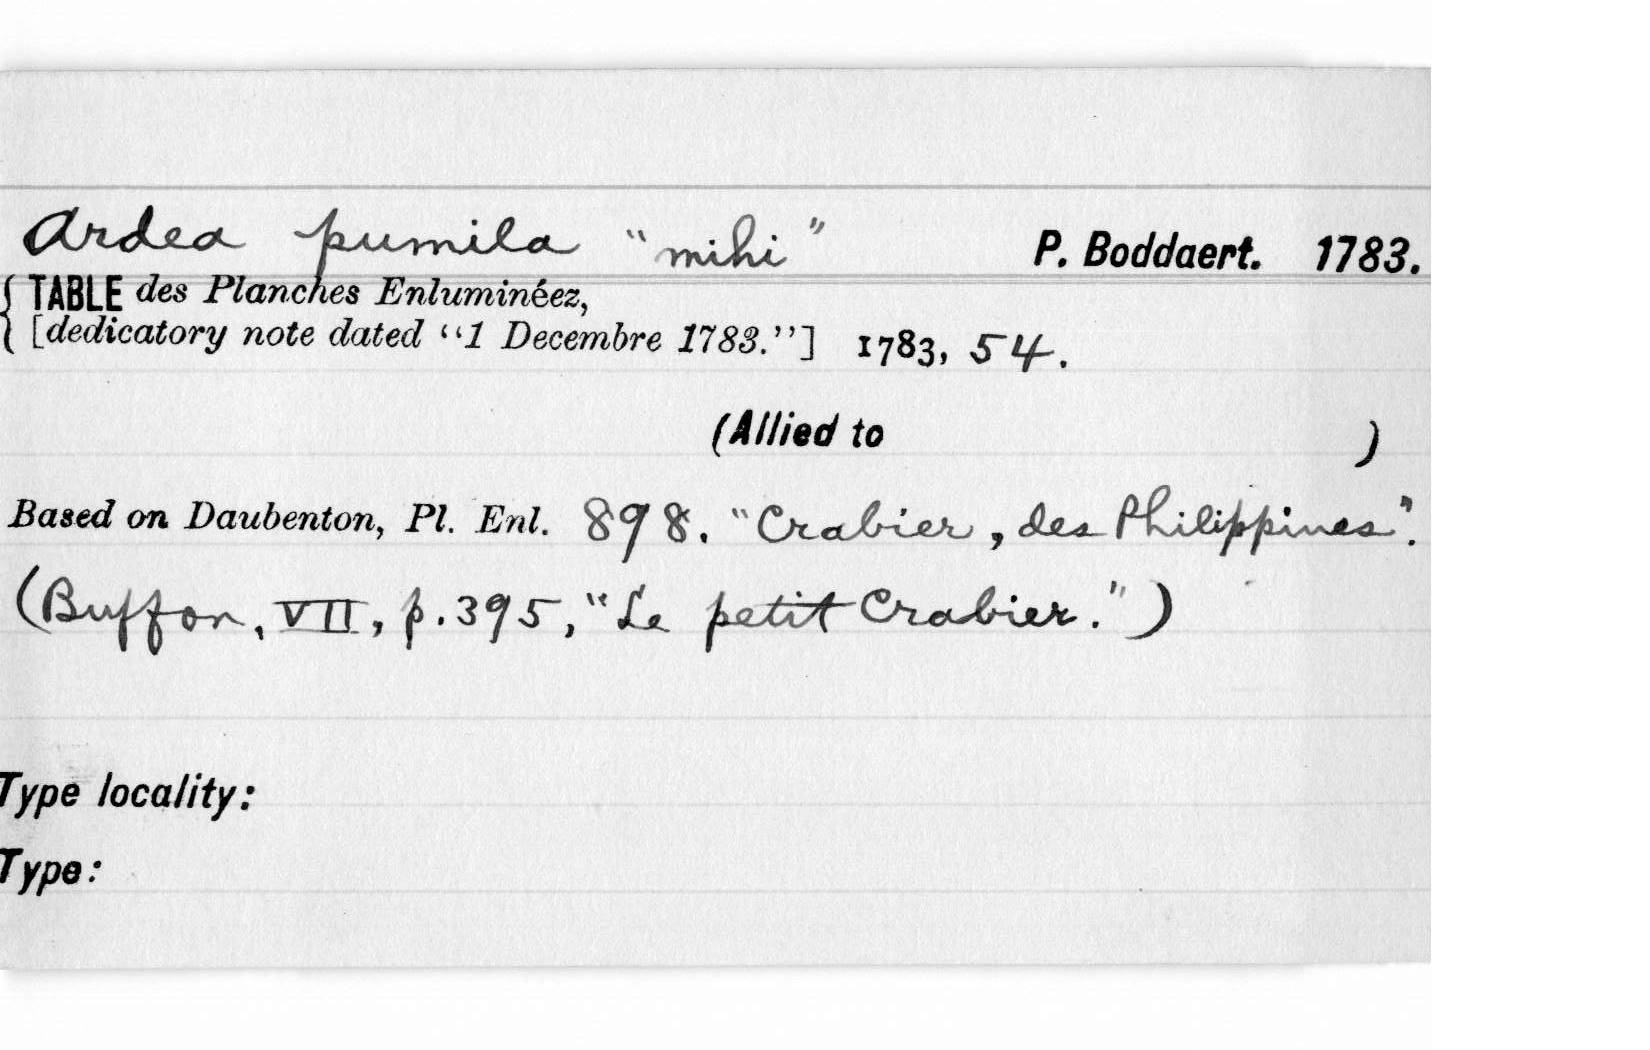 Ardea pumila "mihi" P. Boddaert. 1783.
{ TABLE des Planches Enluminéez,
[dedicatory note dated "1 Decembre 1783."] 1783, 54.
(Allied to )
Based on Daubenton, Pl. Enl. 898. "Crabier, des Philippines".
(Buffon, VII, p. 395, "Le petit Crabier.")
Type locality:
Type: